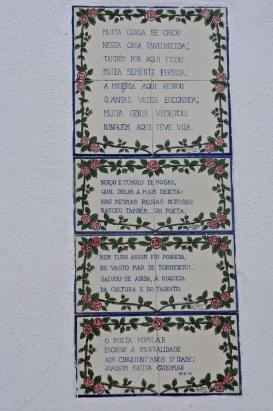 MUITA COUSA SE CRIOU
NESTA CASA ENVELHECIDA;
TAMBÉM POR AQUI FICOU
MUITA SEMENTE PERDIDA;
A MISÉRIA AQUI REINOU
QUANTAS VEZES ESCONDIDA;
MUITA GENTE VEGETOU,
NINGUÉM AQUI TEVE VIDA.
BERÇO E TÚMULO DE ROSAS,
QUAL DELAS A MAIS DILECTA!
NAS MESMAS PALHAS MOFOSAS
NASCEU TAMBÉM... UM POETA.
NEM TUDO ASSIM FOI POBREZA,
NO VASTO MAR DE TORMENTO!...
SALVOU-SE AINDA, A RIQUEZA
DA CULTURA E DO TALENTO.
O POETA POPULAR
ESCREVE A IMORTALIDADE
AOS CINQUENT'ANOS D'IDADE:
JOAQUIM GUIOMAR